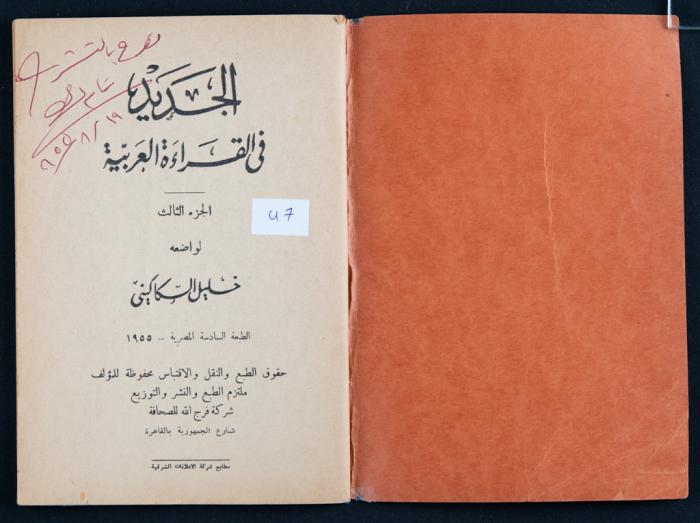 الجديد
في القراءة العربية
الجزء الثالث
لواضعه
خليل السكاكيني
الطبعة السادسة المصرية – ١٩٥٥
حقوق الطبع والنقل والاقتباس محفوظة للمؤلف
ملتزم الطبع والنشر والتوزيع
شركة فرج الله للصحافة
شارع الجمهورية بالقاهرة
مطابع شركة الاعلانات الشرقية